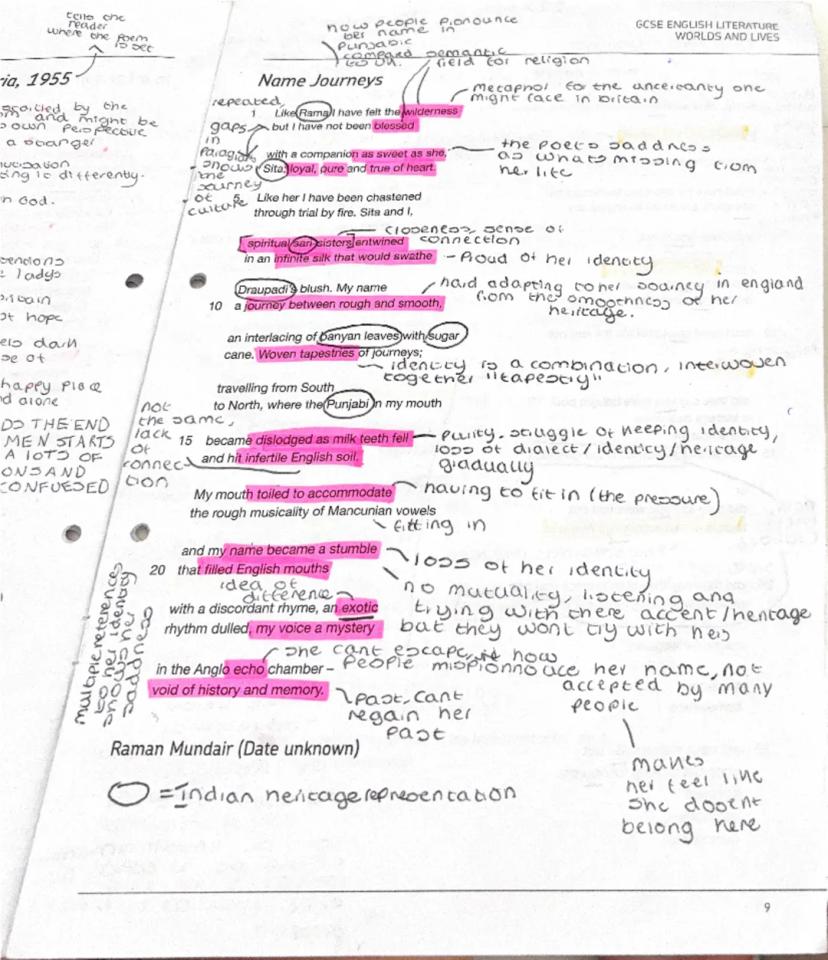 tells the
reader
where the poem
is set
how people pronounce
her name in
Punjabic
compared semantic
to UK. field for religion
GCSE ENGLISH LITERATURE
WORLDS AND LIVES
ria, 1955
Name Journeys
metaphor for the uncertainty one
might face in britain
repeated
gaps
in
Paragraphs
shows
the
journey
of
culture
1 Like Rama I have felt the wilderness
but I have not been blessed
with a companion as sweet as she,
Sita; loyal, pure and true of heart.
the poets saddness
as whats missing from
her life
Like her I have been chastened
through trial by fire. Sita and I,
closeness, sense of
connection
spiritual sari-sisters entwined
in an infinite silk that would swathe
- Proud of her identity
Draupadi's blush. My name
10 a journey between rough and smooth,
hard adapting to her journey in england
from the smoothness of her
heritage.
an interlacing of banyan leaves with sugar
cane. Woven tapestries of journeys;
identity is a combination, interwoven
together "tapestry"
travelling from South
to North, where the Punjabi in my mouth
not
the same,
lack
of
connec-
tion
15 became dislodged as milk teeth fell
and hit infertile English soil.
purity. struggle of keeping identity,
loss of dialect/identity/heritage
gradually
My mouth toiled to accommodate
the rough musicality of Mancunian vowels
having to fit in (the pressure)
fitting in
and my name became a stumble
20 that filled English mouths
loss of her identity
idea of
difference
no mutuality, listening and
trying with there accent/heritage
but they wont try with hers
with a discordant rhyme, an exotic
rhythm dulled, my voice a mystery
she cant escape how
people mispronnouce her name, not
accepted by many
people
in the Anglo echo chamber –
void of history and memory.
Past, cant
regain her
past
makes
her feel like
she doesnt
belong here
multiple references
to her identity
shows her
saddness
Raman Mundair (Date unknown)
= Indian heritage representation
by the
and might be
own perspective
a stranger
to differently.
n God.
lady's
hope
dark
se of
happy place
d alone
DS THE END
MEN STARTS
A LOTS OF
ONS AND
CONFUESED
9